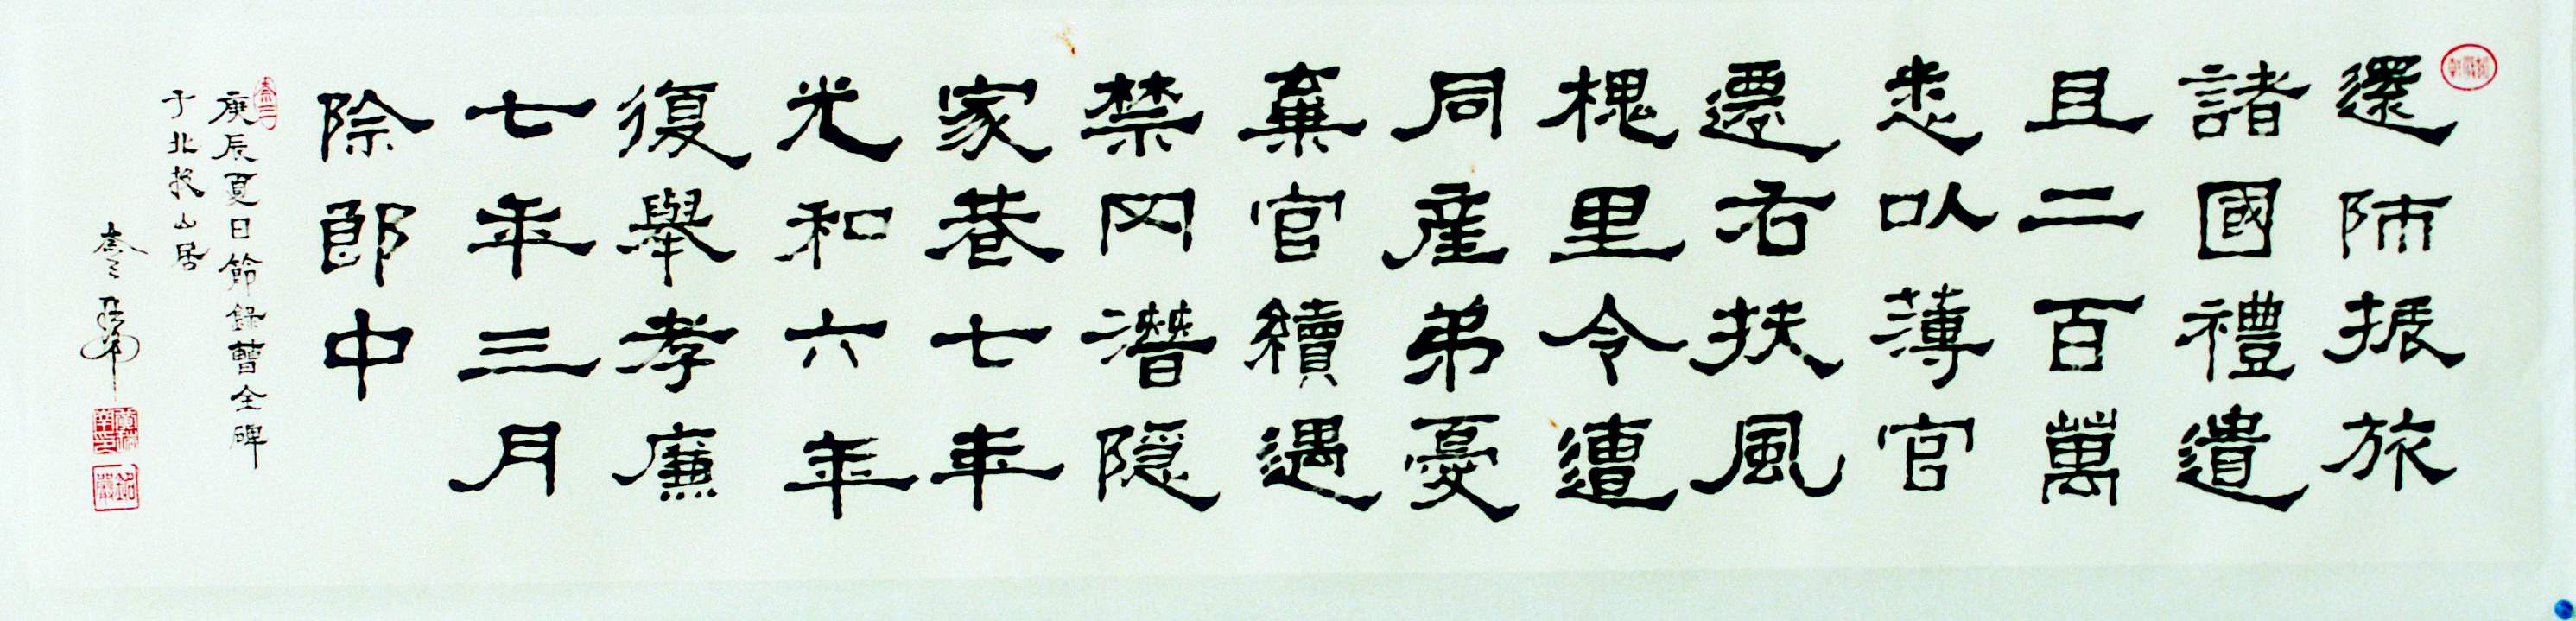 還師振旅
諸國禮遺
且二百萬
悉以薄官
遷右扶風
槐里令遭
同產弟憂
棄官續遇
禁冈潛隱
家巷七年
光和六年
復舉孝廉
七年三月
除郎中
庚辰夏日節錄曹全碑
于北投山居